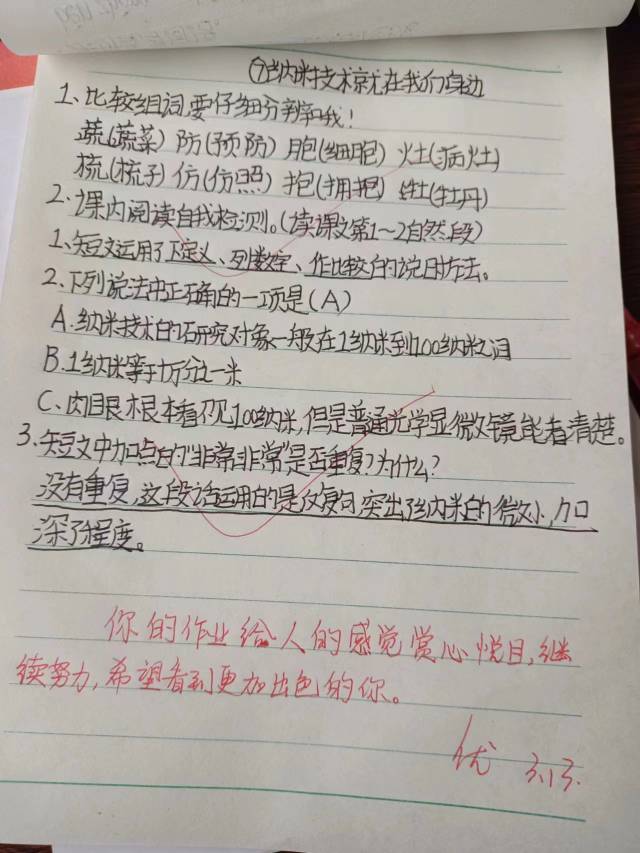 ⑦《纳米技术就在我们身边
1、比较组词,要仔细分辨哦!
蔬(蔬菜) 防(预防) 胞(细胞) 灶(病灶)
梳(梳子) 仿(仿照) 抱(拥抱) 牡(牡丹)
2、课内阅读自我检测。(读课文第1~2自然段)
1、短文运用了下定义、列数字、作比较的说明方法。
2、下列说法中正确的一项是(A)
A.纳米技术的研究对象一般在1纳米到100纳米之间
B.1纳米等于十万分之一米
C、肉眼根本看不见100纳米,但是普通光学显微镜能看清楚。
3、短文中加点的"非常非常"是否重复?为什么?
没有重复,这段话运用的是反复句,突出了纳米的微小,加
深了程度。
你的作业给人的感觉赏心悦目,继
续努力,希望看到更加出色的你。
优 3.13.